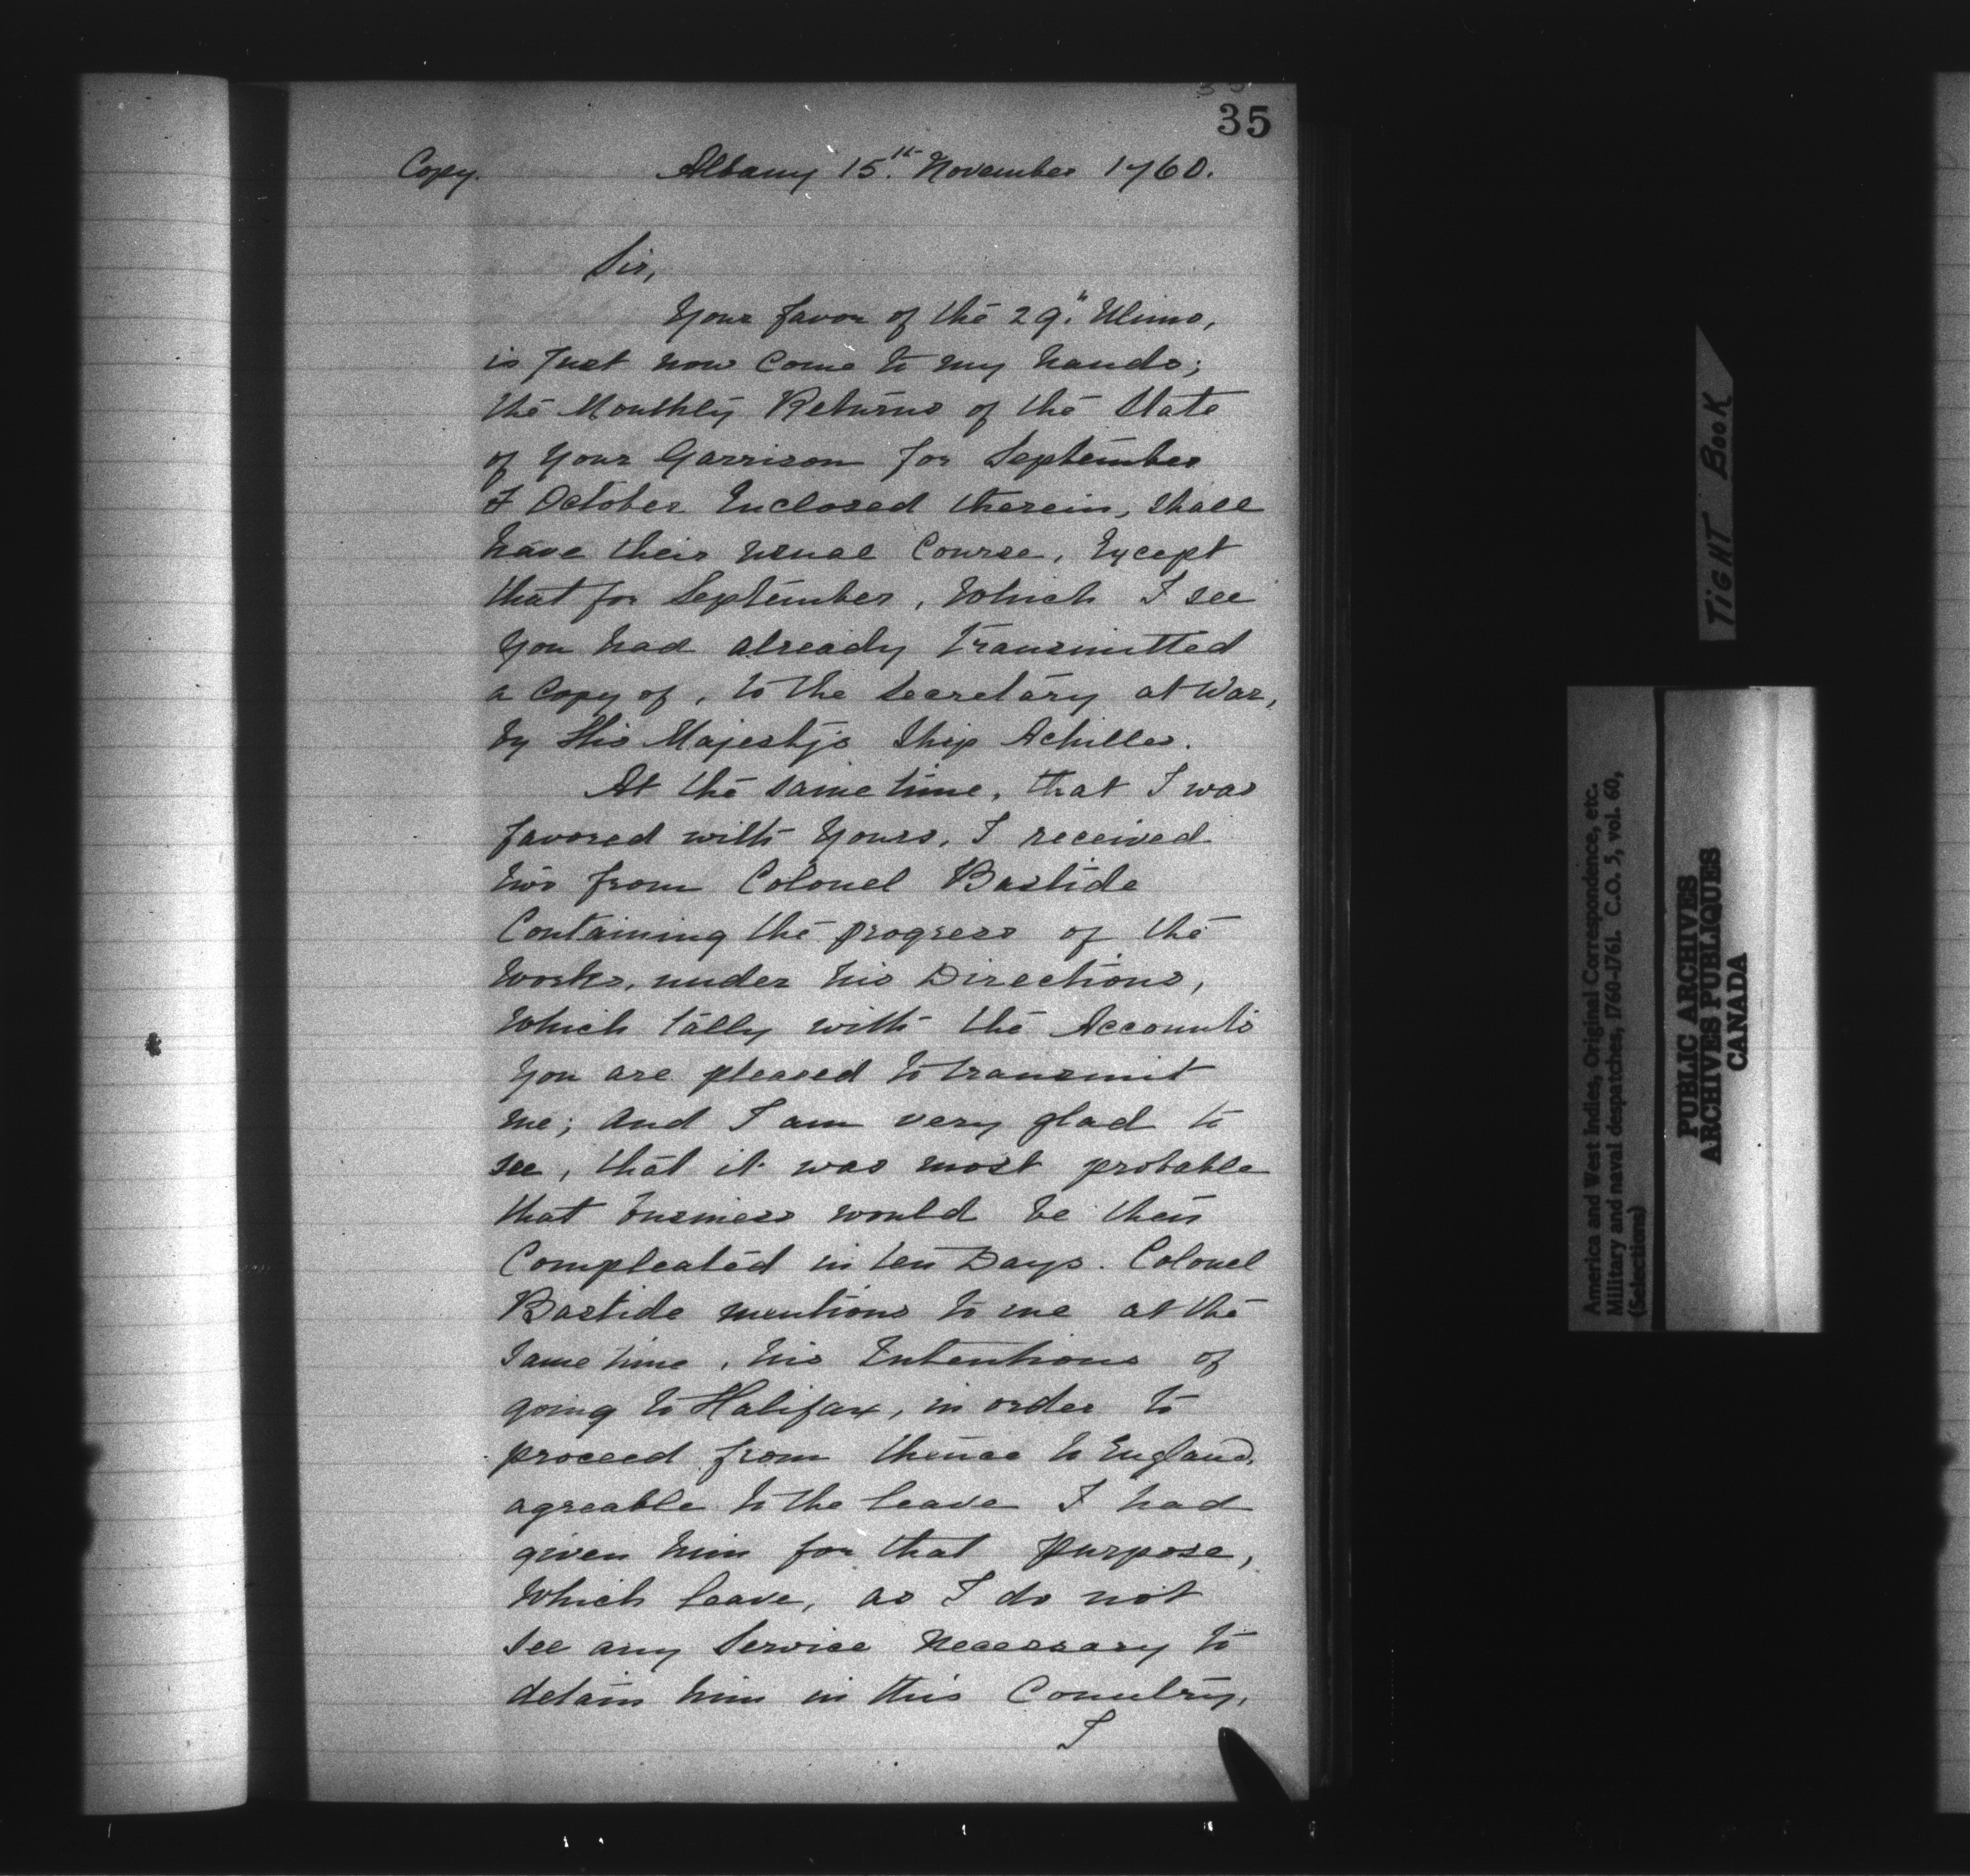 35
Copy. Albany 15th November 1760.
Sir,
Your favor of the 29th Ulimo,
is Just now Come to my hands;
the Monthly Returns of the State
of Your Garrison for September
& October Inclosed therein, shall
have their usual Course, Except
that for September, Which I see
You had already Transmitted
a Copy of, to the Secretary at War,
by His Majesty's Ship Achilles.
At the same time, that I was
favored with Yours, I received
two from Colonel Bastide
Containing the progress of the
Works, under his Directions,
Which tally with the Accounts
You are pleased to transmit
me; and I am very glad to
see, that it was most probable
that business would be then
Compleated in ten Days. Colonel
Bastide mentions to me at the
same time, his Intentions of
going to Halifax, in order to
proceed from thence to England,
agreable to the leave I had
given him for that purpose,
Which leave, as I do not
see any Service necessary to
detain him in this Country,
I
TIGHT BOOK
America and West Indies, Original Correspondence, etc.
Military and naval despatches, 1760-1761. C.O. 5, vol. 60,
(Selections)
PUBLIC ARCHIVES
ARCHIVES PUBLIQUES
CANADA